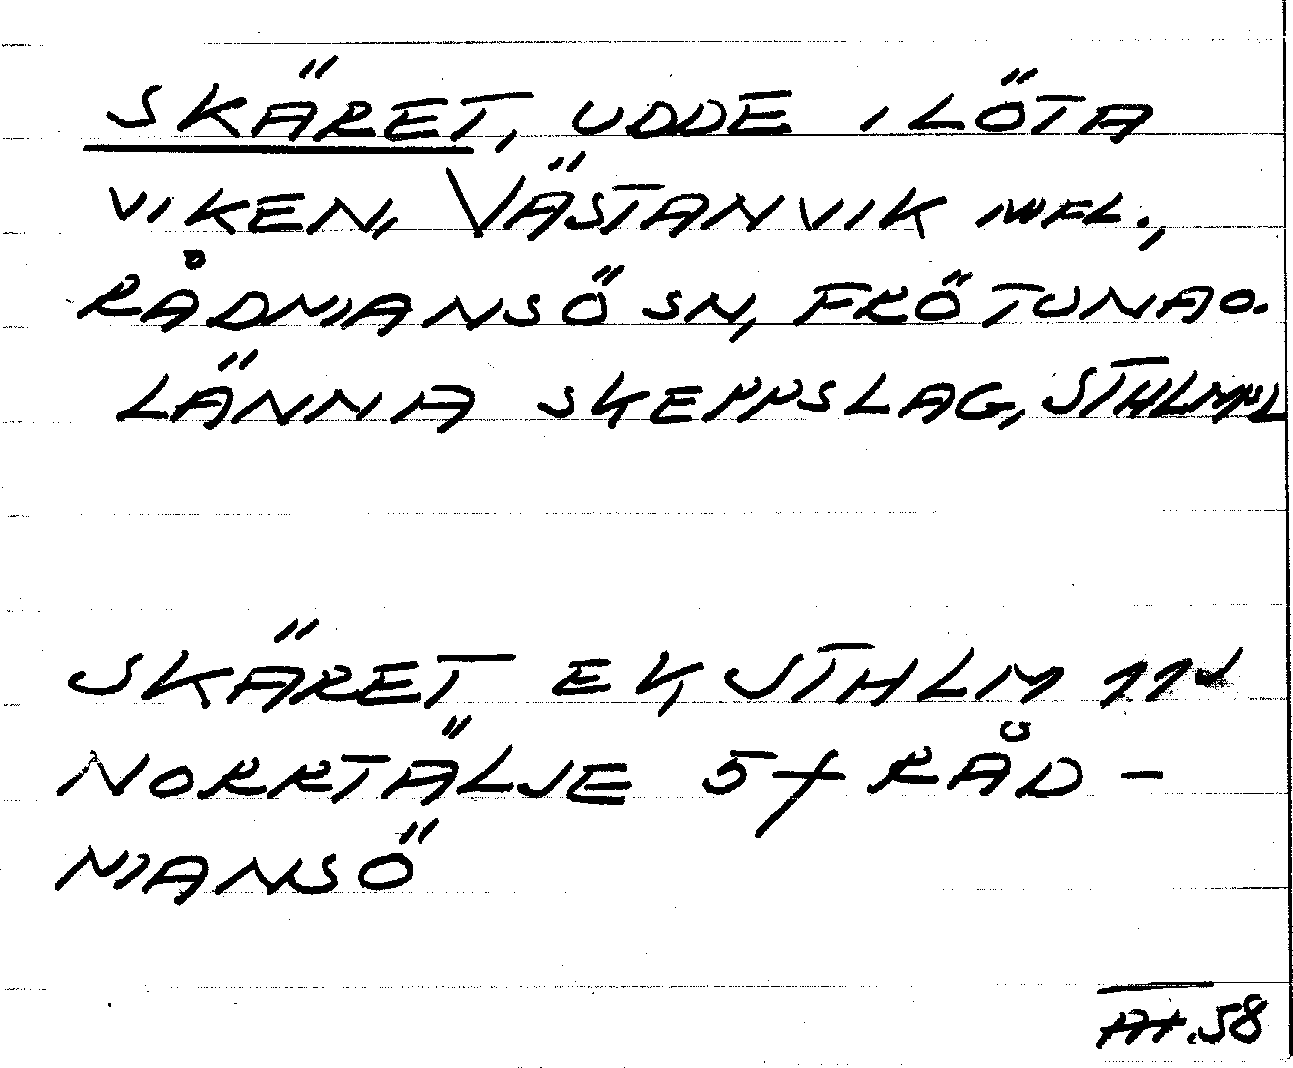 SKÄRET, UDDE I LÖTA
VIKEN, VÄSTANVIK
RÅDMANSÖ SN, FRÖTUNA O.
LÄNNA SKEPPSLAG, STHLMS L
SKÄRET EK, STHLM 11d
NORRTÄLJE 5 f RÅD-
MANSÖ
.58